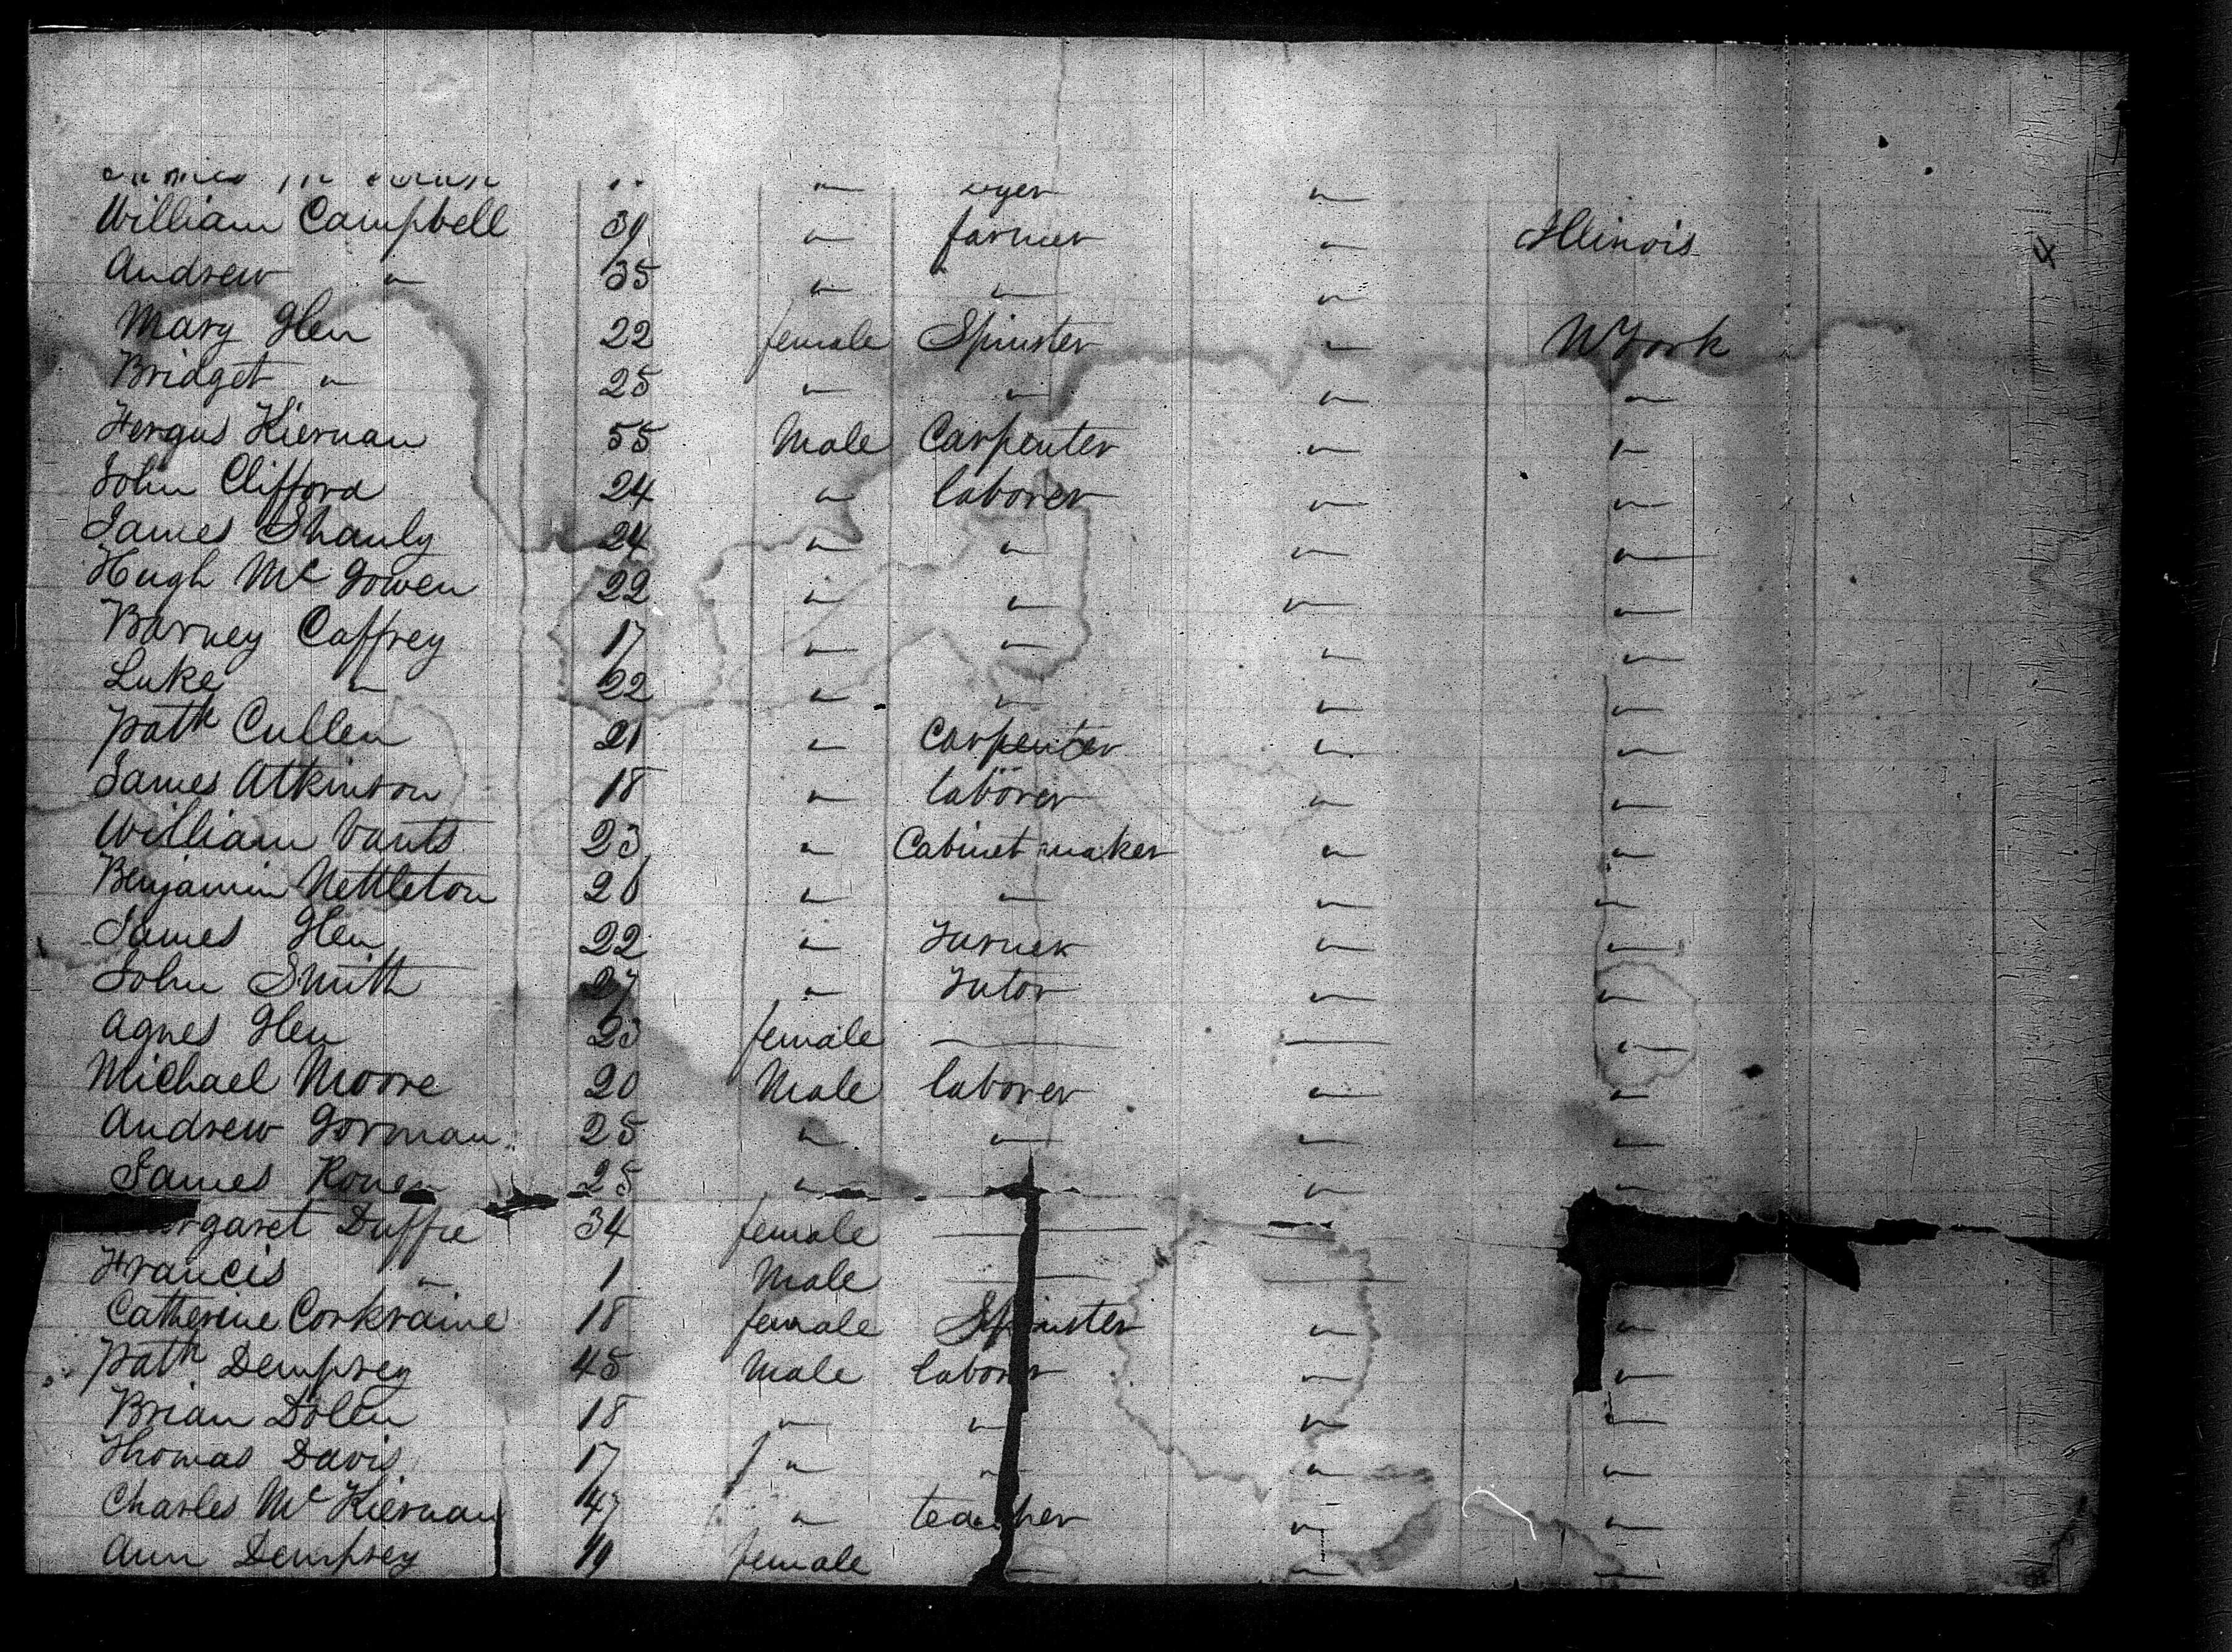 William Campbell 39 " farmer " Illinois
Andrew " 35 " " "
Mary Glen 22 female Spinster " N York
Bridget " 25 " " " "
Fergus Kiernan 55 Male Carpenter " "
John Clifford 24 " laborer " "
James Shanly 24 " " " "
Hugh Mc Gowen 22 " " " "
Barney Caffrey 17 " " " "
Luke " 22 " " " "
Patk Cullen 21 " Carpenter " "
James Atkinson 18 " laborer " "
William Vants 23 " Cabinet maker " "
Benjamin Nettleton 20 " " " "
James Glen 22 " Turner " "
John Smith 27 " Tutor " "
Agnes Glen 23 female — — "
Michael Moore 20 Male laborer " "
Andrew Gorman 25 " " " "
James 25 " " "
rgaret Duffie 34 female —
Francis " 1 Male — —
Catherine Corkraine 18 female Spinster " "
Patk Dempsey 45 Male laborer " "
Brian Dolen 18 " " " "
Thomas Davis 17 " " " "
Charles Mc Kiernan 47 " teacher " "
Ann Dempsey 19 female — " "